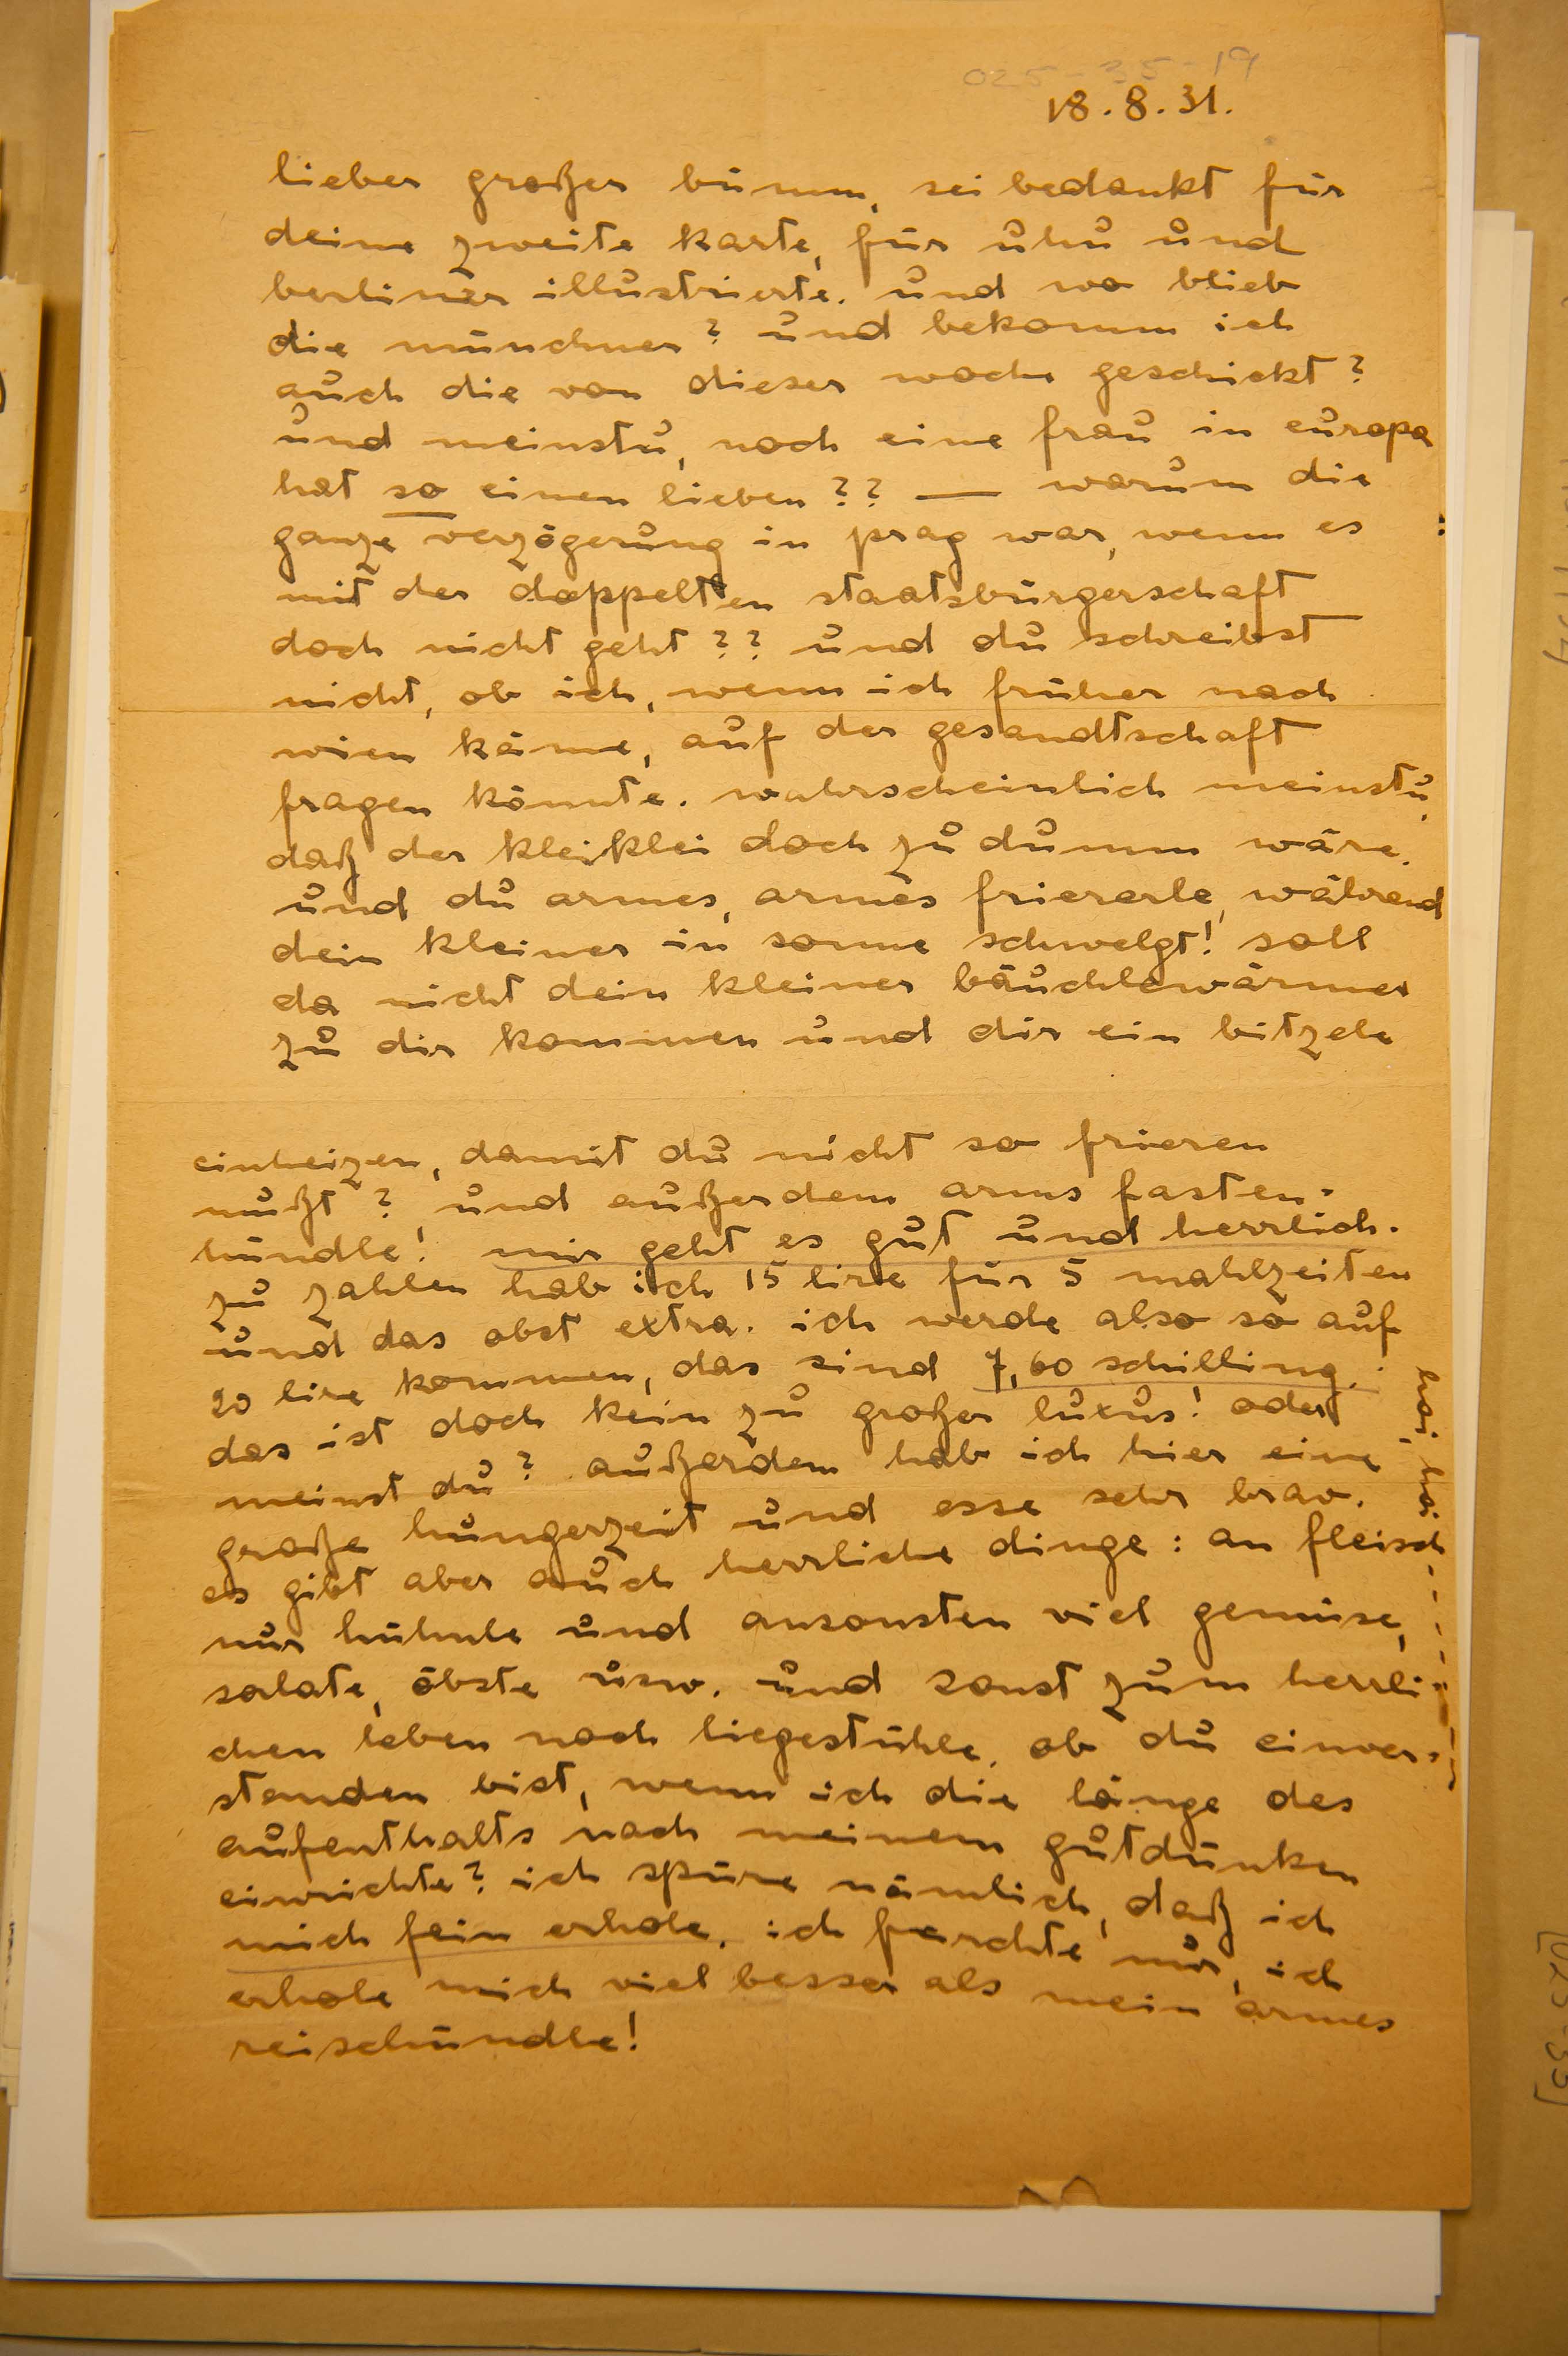 025-35-19
18.8.31.
lieber großer bumm, sei bedankt für
deine zweite karte, für uhu und
berliner illustrierte. und wo blieb
die münchner? und bekomm ich
auch die von dieser woche geschickt?
und meinstu, noch eine frau in europa
hat so einen lieben?? — warum die
ganze verzögerung in prag war, wenn es
mit der doppelten staatsbürgerschaft
doch nicht geht?? und du schreibst
nicht, ob ich, wenn ich früher nach
wien käme, auf der gesandtschaft
fragen könnte. wahrscheinlich meinstu,
daß der kleiklei doch zu dumm wäre.
und du armes, armes friererle, während
dein kleiner in sonne schwelgt! soll
da nicht dein kleiner bäuchlewärmer
zu dir kommen und dir ein bitzele
einheizen, damit du nicht so frieren
mußt? und außerdem arms fasten-
hündle! mir geht es gut und herrlich.
zu zahlen hab ich 15 lire für 5 mahlzeiten
und das obst extra. ich werde also so auf
20 lire kommen, das sind 7,60 schilling.
das ist doch kein zu großer luxus! oder
meinst du? außerdem hab ich hier eine
große hungerzeit und esse sehr brav.
es gibt aber auch herrliche dinge: an fleisch
nur hühnle und ansonsten viel gemüse,
salate, öbste usw. und sonst zum herrli-
chen leben noch liegestühle. ob du einver-
standen bist, wenn ich die länge des
aufenthalts nach meinem gutdünken
einrichte? ich spüre nämlich, daß ich
mich fein erhole. ich farchte nur, ich
erhole mich viel besser als mein armes
reisehündle!